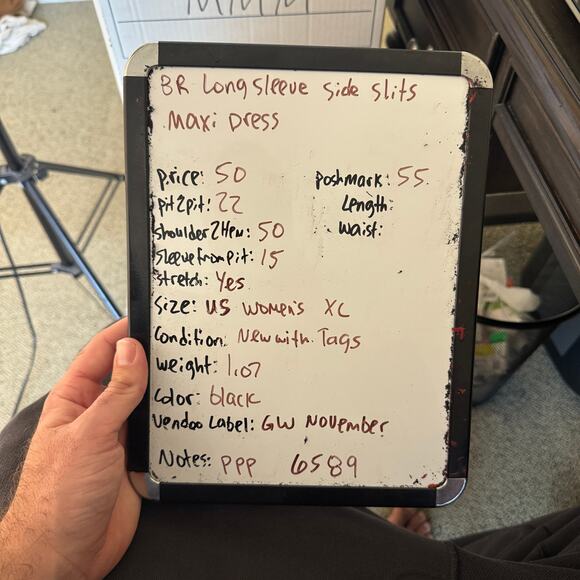 BR Longsleeve side slits
Maxi Dress
price: 50
poshmark: 55
pit2pit: 22
Length:
shoulder2Hem: 50
waist:
sleevefrompit: 15
stretch: Yes
Size: US Women's XL
Condition: New with Tags
weight: 1.07
Color: black
Vendoo Label: GW November
Notes: PPP 6589